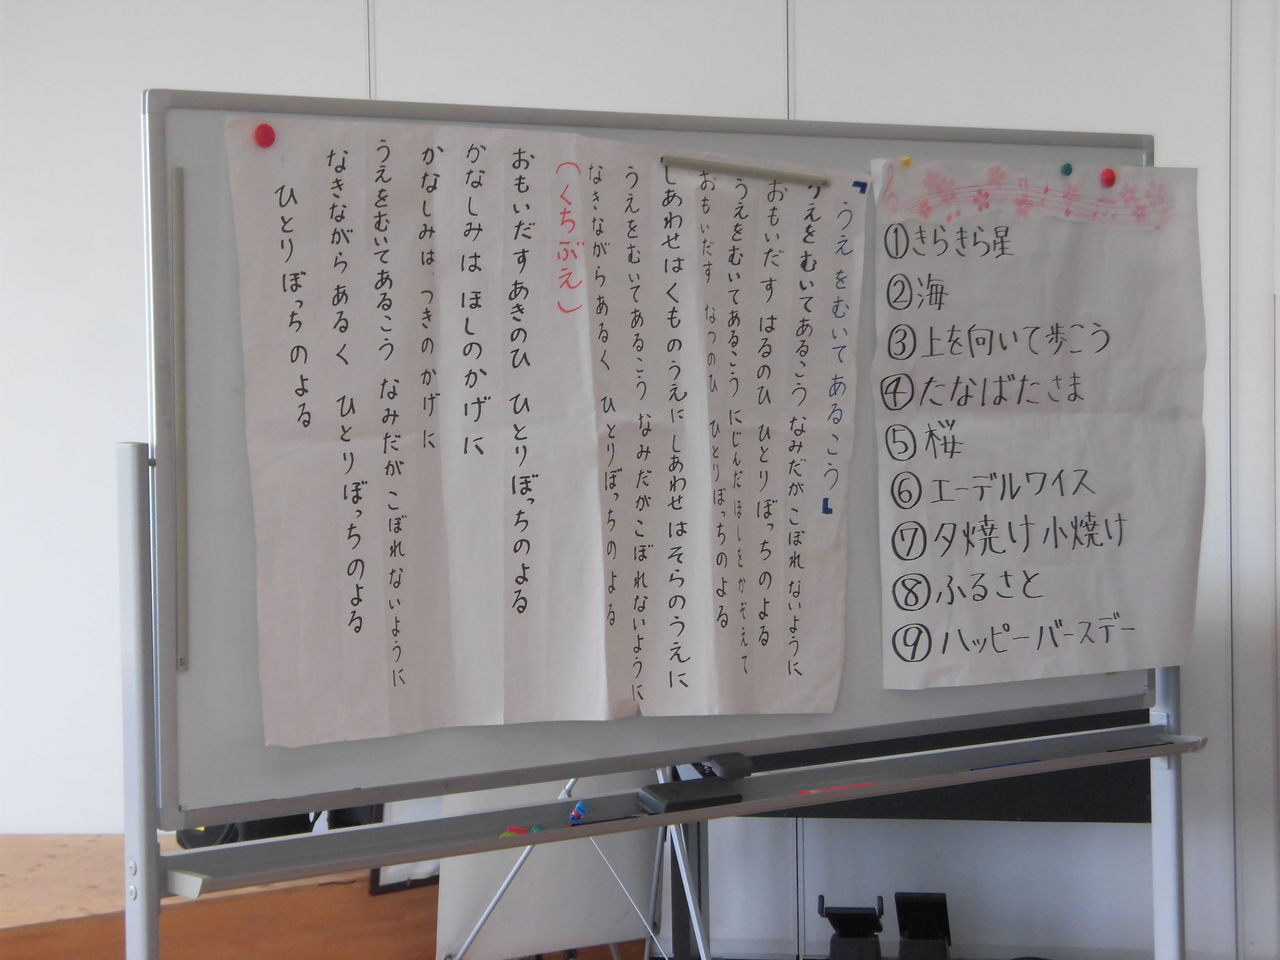 ①きらきら星
②海
③上を向いて歩こう
④たなばたさま
⑤桜
⑥エーデルワイス
⑦夕焼け小焼け
⑧ふるさと
⑨ハッピーバースデー
「うえをむいてあるこう」
うえをむいてあるこう なみだがこぼれないように
おもいだす はるのひ ひとりぼっちのよる
うえをむいてあるこう にじんだ ほしをかぞえて
おもいだす なつのひ ひとりぼっちのよる
しあわせはくものうえに しあわせはそらのうえに
うえをむいてあるこう なみだがこぼれないように
なきながらあるく ひとりぼっちのよる
(くちぶえ)
おもいだすあきのひ ひとりぼっちのよる
かなしみはほしのかげに
かなしみは、つきのかげに
うえをむいてあるこう なみだがこぼれないように
なきながらあるく ひとりぼっちのよる
ひとりぼっちのよる